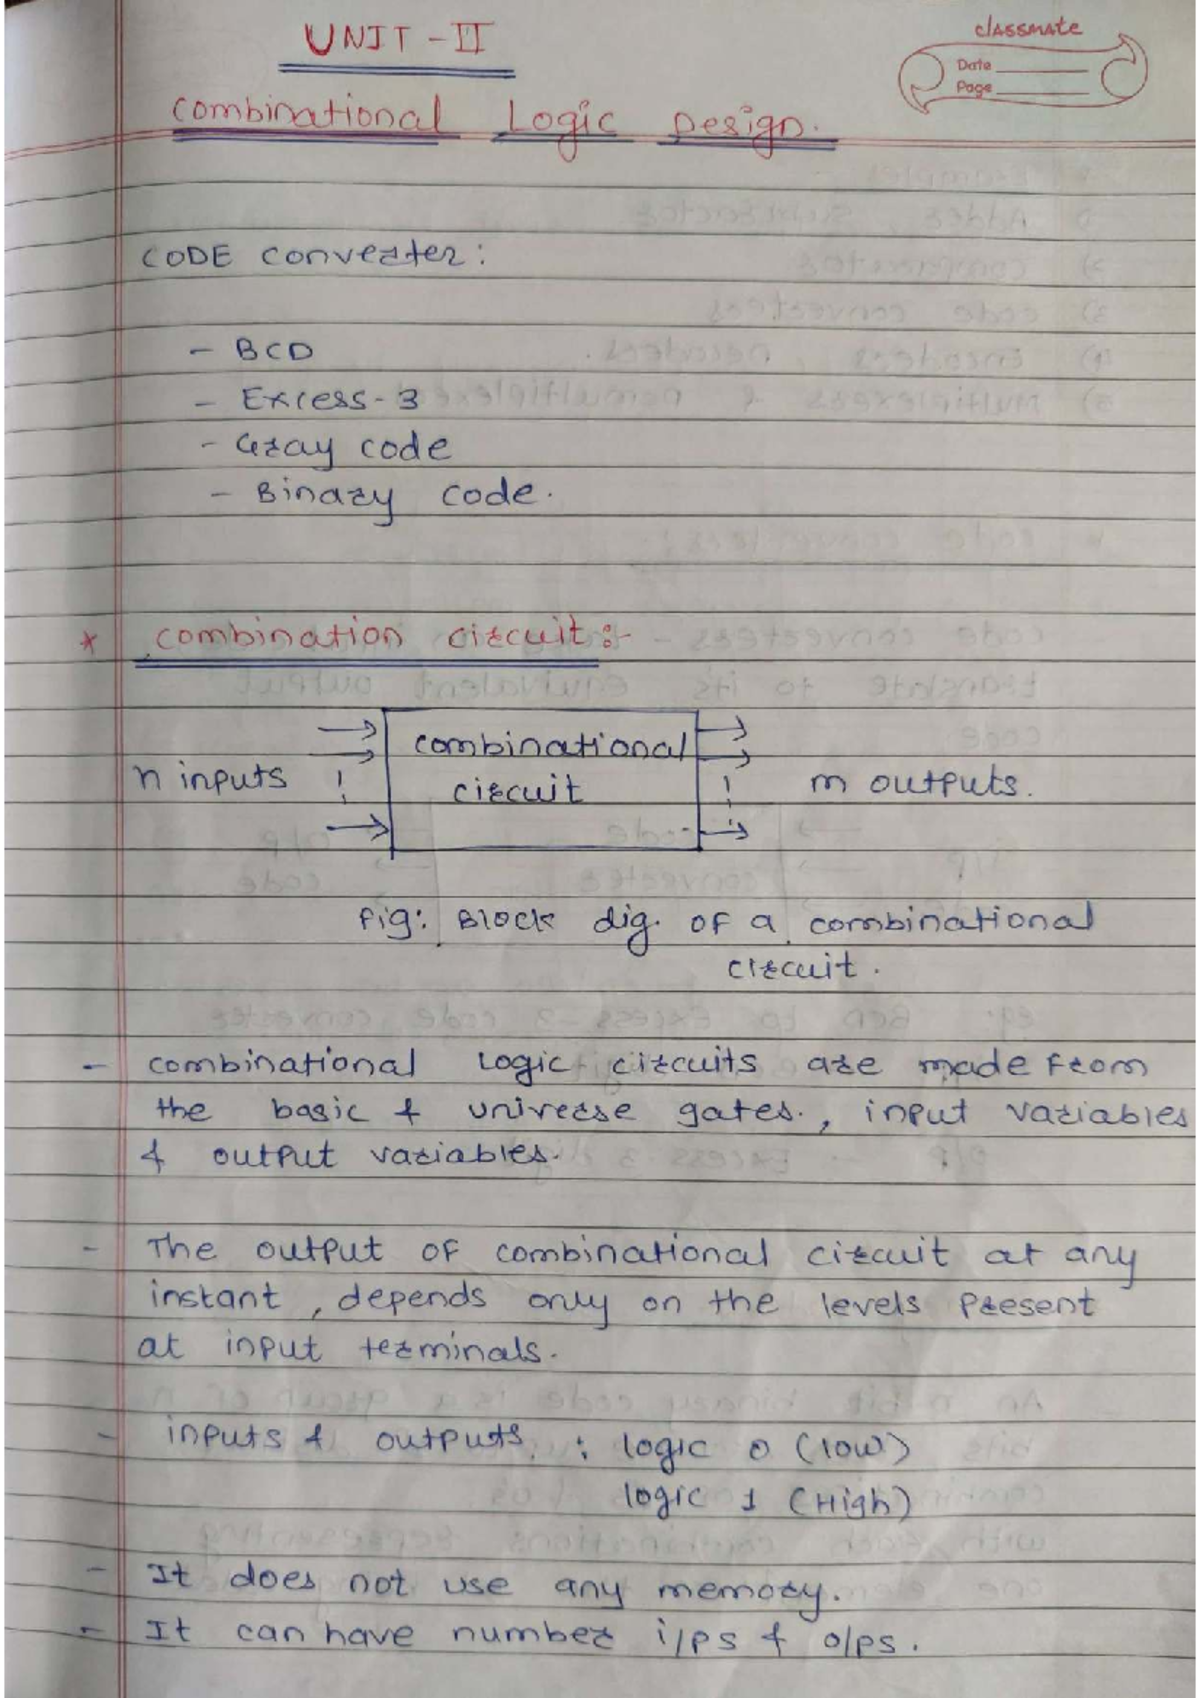 UNIT - II
classmate
Date
Page
Combinational Logic Design.
CODE Converter:
- BCD
- Excess-3
- Gray code
- Binary code.
* Combination circuit:-
n inputs
combinational
circuit
m outputs.
Fig: Block dig. of a combinational
circuit.
- Combinational Logic circuits are made from
the basic & universe gates., input variables
& output variables.
- The output of combinational circuit at any
instant, depends only on the levels present
at input terminals.
- inputs & outputs : logic 0 (low)
logic 1 (High)
- It does not use any memory.
- It can have number i/ps & o/ps.